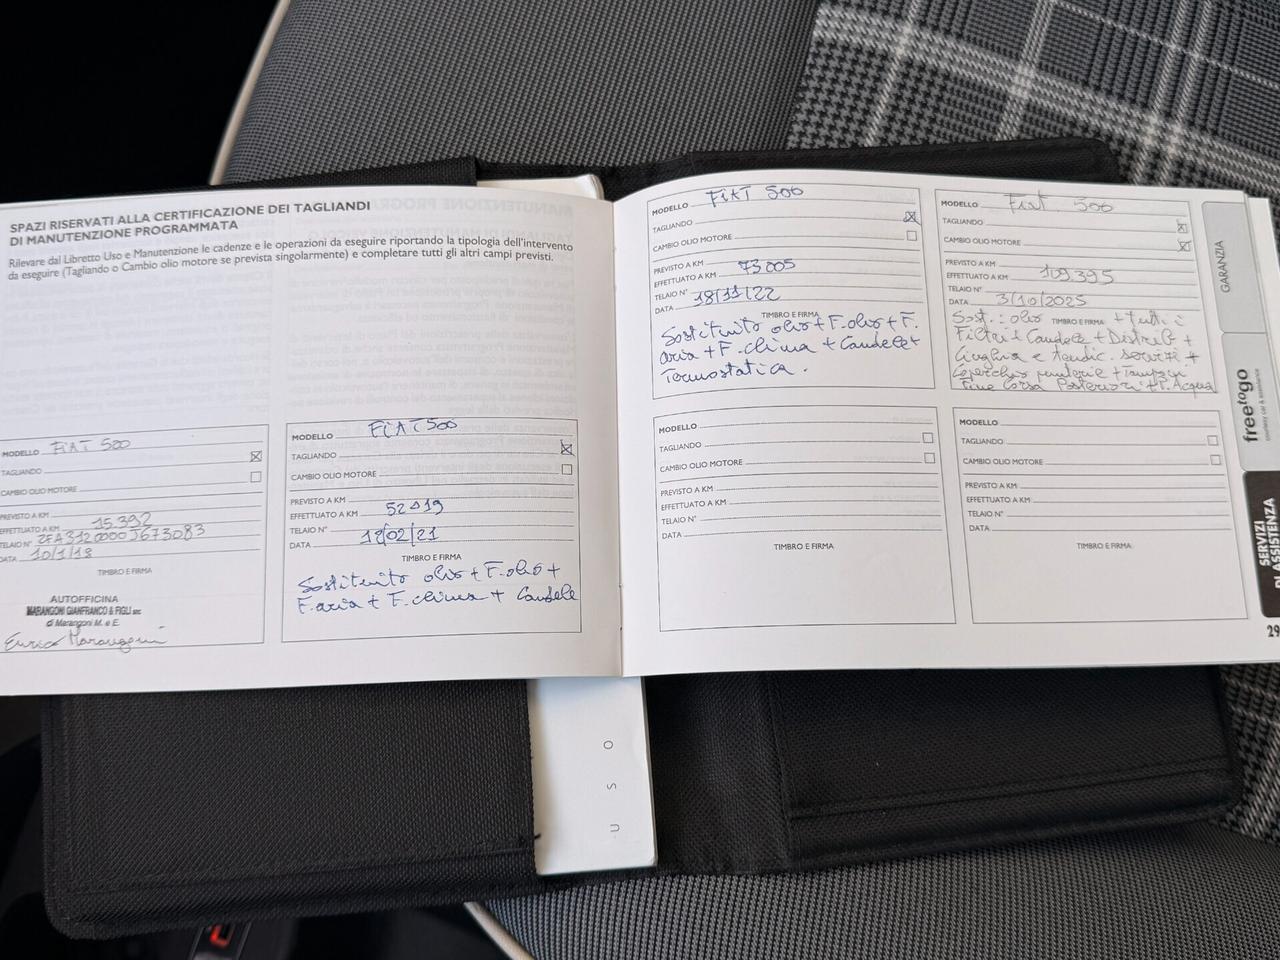 SPAZI RISERVATI ALLA CERTIFICAZIONE DEI TAGLIANDI
DI MANUTENZIONE PROGRAMMATA
Rilevare dal Libretto Uso e Manutenzione le cadenze e le operazioni da eseguire riportando la tipologia dell'intervento
da eseguire (Tagliando o Cambio olio motore se prevista singolarmente) e completare tutti gli altri campi previsti.
MODELLO FIAT 500
TAGLIANDO
CAMBIO OLIO MOTORE
PREVISTO A KM
EFFETTUATO A KM 15.392
TELAIO N° ZFA3120000J673083
DATA 10/1/18
TIMBRO E FIRMA
AUTOFFICINA
MARANGONI GIANFRANCO & FIGLI snc
di Marangoni M. e E.
Enrico Marangoni
MODELLO FIAT 500
TAGLIANDO
CAMBIO OLIO MOTORE
PREVISTO A KM
EFFETTUATO A KM
TELAIO N°
DATA
TIMBRO E FIRMA
Sostituito olio + F. olio +
F. aria + F. clima + Candele
MODELLO FIAT 500
TAGLIANDO
CAMBIO OLIO MOTORE
PREVISTO A KM
EFFETTUATO A KM 73005
TELAIO N°
DATA 18/11/22
TIMBRO E FIRMA
Sostituito olio + F. olio + F.
aria + F. clima + Candele +
Termostatica.
MODELLO Fiat 500
TAGLIANDO
CAMBIO OLIO MOTORE
PREVISTO A KM
EFFETTUATO A KM 109.395
TELAIO N°
DATA 3/10/2025
TIMBRO E FIRMA
Sost.: olio + tutti i
Filtri + Candele + Distrib +
Cinghia e tendic. servizi +
Coperchio punterie + Tamponi
Fine Corsa Posteriori + P. Acqua
MODELLO
TAGLIANDO
CAMBIO OLIO MOTORE
PREVISTO A KM
EFFETTUATO A KM
TELAIO N°
DATA
TIMBRO E FIRMA
MODELLO
TAGLIANDO
CAMBIO OLIO MOTORE
PREVISTO A KM
EFFETTUATO A KM
TELAIO N°
DATA
TIMBRO E FIRMA
GARANZIA
freetogo
SERVIZI
DI ASSISTENZA
29
USO